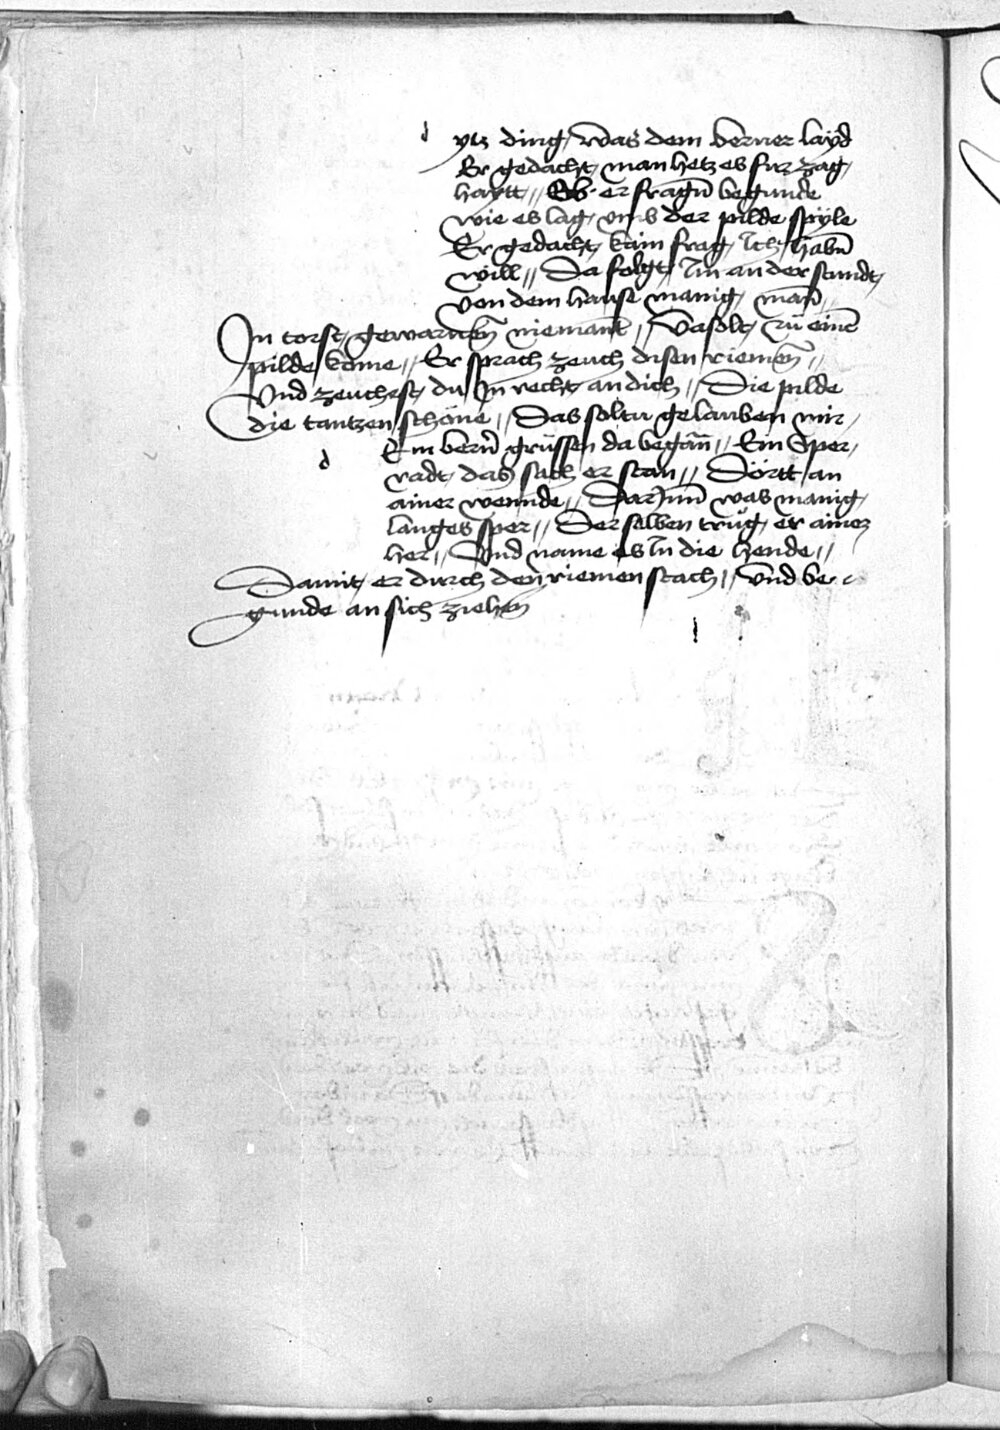 d ytz ding, was dem berner layd
Er gedacht, man hetz es fur zag,
haytt,, Ob er fragñ begunde
wie es lag, vmb der pilde spyle
Er gedacht, kain frag, Ich, habñ
will,, Da folgt, Im an der stundt,
von dem hause manig, mañ,,
In torst, gewarnnen niemant,, Vasolt, zü eine
pilde kome,, Er sprach zeuch disen riemen,,
Vnd zeuchst, du In recht, an dich,, Die pilde
die tantzen schöne,, Das soltu gelauben mir,
d Em berñ grüssen da begañ,, Ein Sper,
radt, das sach er stan,, Dörtt an
ainer wennde,, Darjnn was manig,
langes sper,, Der selben trüg, er aines
her,, Vnd name es In die hende,,
Damit, er durch den riemen stach,, Vnd be,
gunde an sich ziehen